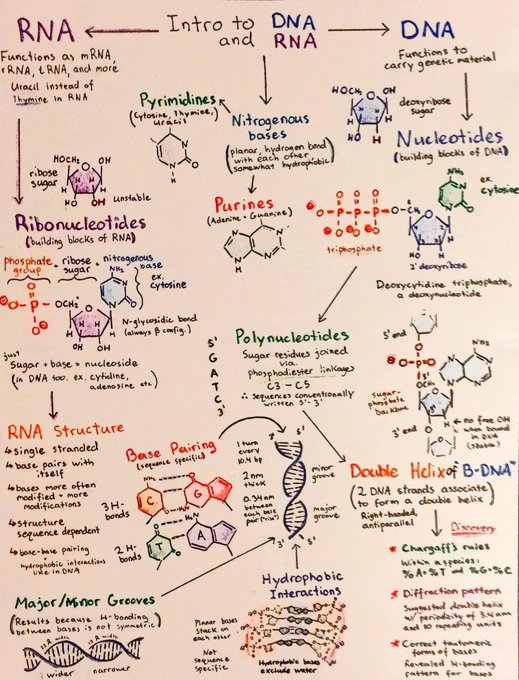 RNA
Intro to DNA
and RNA
DNA
Functions as mRNA,
rRNA, tRNA, and more
Uracil instead of
Thymine in RNA
HOCH2
OH
OH OH
ribose
sugar
unstable
Ribonucleotides
(building blocks of RNA)
phosphate + ribose + nitrogenous
group sugar base
ex.
cytosine
NH2
O-P-OCH2
OH OH
N-glycosidic bond
(always β config.)
just
Sugar + base = nucleoside
(in DNA too. ex. cytidine,
adenosine etc)
RNA Structure
↳ single stranded
↳ base pairs with
itself
↳ bases more often
modified + more
modifications
↳ structure
sequence dependent
↳ base-base pairing
hydrophobic interactions
like in DNA
Pyrimidines
(cytosine, thymine,
uracil)
Nitrogenous
bases
(planar, hydrogen bond
with each other,
somewhat hydrophobic)
Purines
(Adenine + Guanine)
HOCH2
OH
OH H
deoxyribose
sugar
Functions to
carry genetic material
Nucleotides
(building blocks of DNA)
ex.
cytosine
NH2
O-P-P-P-O-CH2
triphosphate
2' deoxyribose
Deoxycytidine triphosphate,
a deoxynucleotide
Polynucleotides
Sugar residues joined
via
phosphodiester linkages
C3 - C5
∴ sequences conventionally
written 5'-3'
5'
G
A
T
C
3'
5' end
NH2
sugar-
phosphate
backbone
3' end
no free OH
when bound
in DNA
(stable)
Base Pairing
(sequence specific)
3 H-
bonds
C G
2 H-
bonds
T A
1 turn
every
10.4 bp
2 nm
thick
0.34 nm
between
each base
pair
minor
groove
major
groove
3' 5'
Double Helix of B-DNA
(2 DNA strands associate
to form a double helix)
Right-handed,
antiparallel
Discovery
* Chargaff's rules
Within a species:
%A=%T and %G=%C
* Diffraction pattern
Suggested double helix
w/ periodicity of 3.4 nm
and 10 repeating units
* Correct tautomeric
forms of bases
Revealed H-bonding
pattern for bases
Major/Minor Grooves
(Results because H-bonding
between bases is not symmetric)
wider narrower
Hydrophobic
Interactions
Planar bases
stack on
each other
Not
sequence
specific
Hydrophobic bases
exclude water